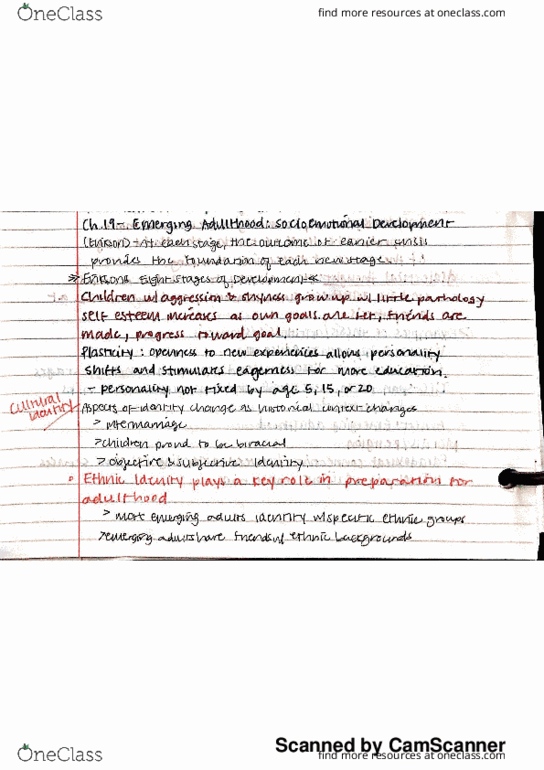 OneClass
find more resources at oneclass.com
Ch.19- Emerging Adulthood: Socioemotional Development
(Erikson) - At each stage, the outcome of earlier crisis
provides the foundation of each new stage
Eriksons Eight stages of Development
Children w/ aggression & shyness grow up w/ little pathology
self esteem increases as own goals are set, friends are
made, progress toward goal.
Plasticity: openness to new experiences allows personality
shifts and stimulates eagerness for more education.
- personality not fixed by age 5, 15, or 20
Cultural Identity
Aspects of identity change as historical context changes
> intermarriage
>children proud to be biracial
> objective & subjective Identity
Ethnic Identity plays a key role in preparation for
adulthood
> most emerging adults identify w/ specific ethnic groups
>emerging adults have friends of ethnic backgrounds
Scanned by CamScanner
OneClass
find more resources at oneclass.com